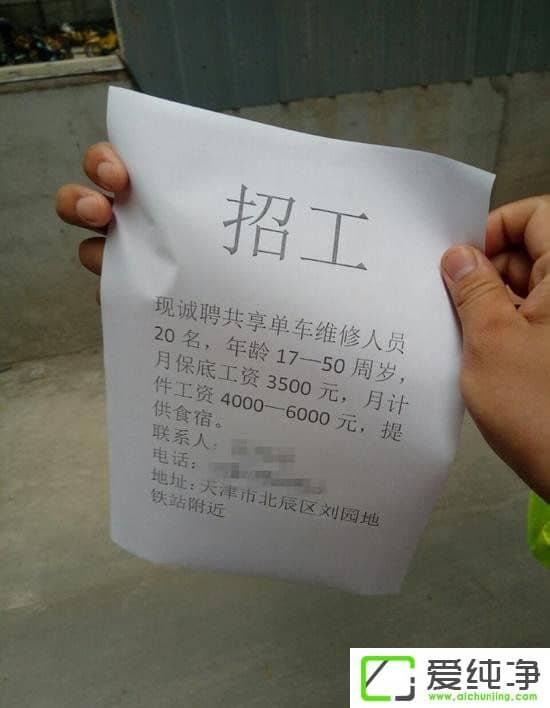 招工
现诚聘共享单车维修人员
20 名，年龄 17—50 周岁，
月保底工资 3500 元，月计
件工资 4000—6000 元，提
供食宿。
联系人：
电话：
地址：天津市北辰区刘园地
铁站附近
爱纯净
www.aichunjing.com